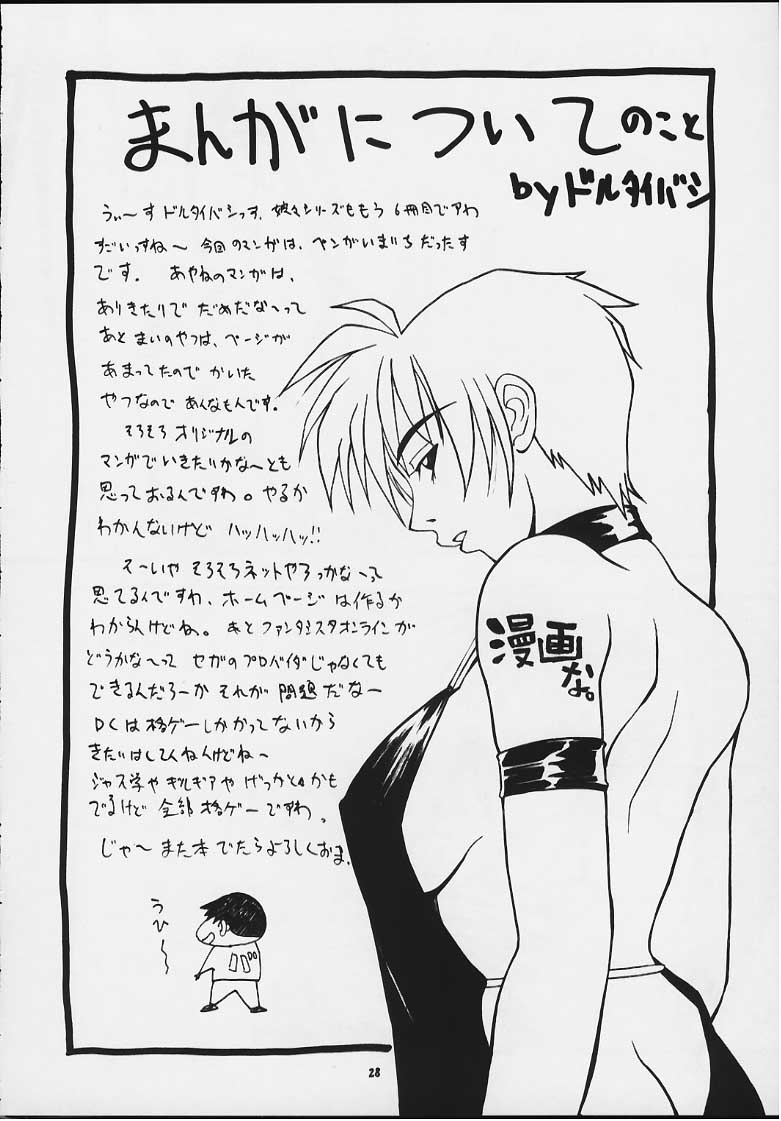 まんがについてのこと
byドルタイバシ
うぃ〜す ドルタイバシっす。娘々シリーズももう 6冊目でアわ
すごいっすね〜 今回のマンガは、ペンがいまいちだったす
です。 あやねのマンガは、
ありきたりで だめだな〜って
あと まいのやつは、ページが
あまってたので かいた
やつなので あんなもんです。
そろそろ オリジナルの
マンガでいきたいかな〜とも
思っておるんですわ。やるか
わかんないけど ハッハッハッ!!
そ〜いや そろそろネットやろっかな〜って
思てるんですわ、ホームページは作るか
わからんけどね。あと ファンタシスタオンラインが
どうかな〜って セガのプロバイダじゃなくても
できるんだろーか それが 問題だなー
DCは格ゲーしかかってないから
きたいはしてんねんけどね〜
ジャス学や ギルギアや げっかとかも
でるけど 全部 格ゲーですわ。
じゃ〜 また本 でたらよろしくおま。
漫画
な。
うひ〜
28